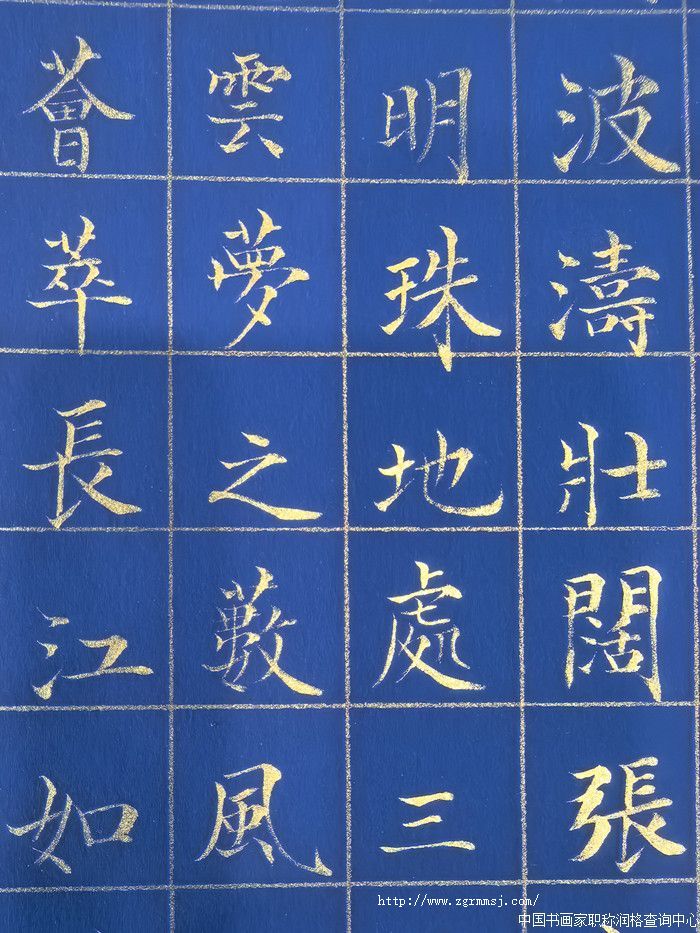 波濤壯闊張
明珠地處三
雲夢之藪風
薈萃長江如
http://www.zgrmmsj.com/
中国书画家职称润格查询中心